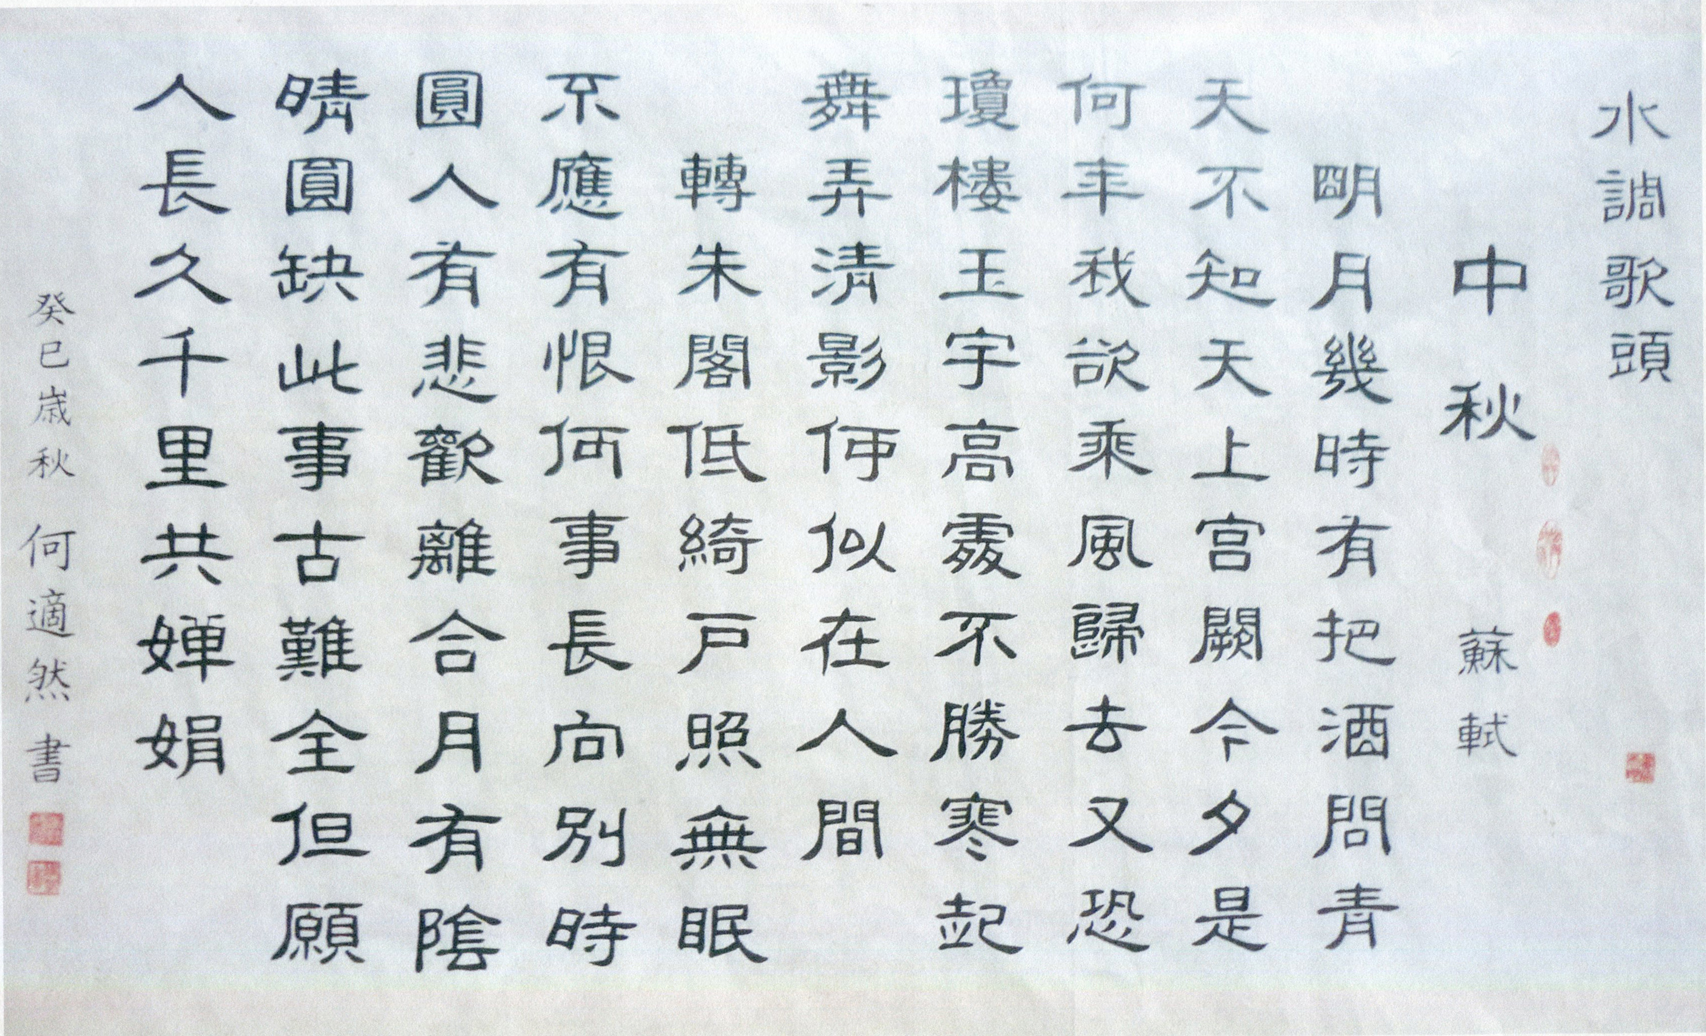 水調歌頭
中秋 蘇軾
明月幾時有把酒問青
天不知天上宫闕今夕是
何年我欲乘風歸去又恐
瓊樓玉宇高處不勝寒起
舞弄清影何似在人間
轉朱閣低綺戸照無眠
不應有恨何事長向別時
圓人有悲歡離合月有陰
晴圓缺此事古難全但願
人長久千里共嬋娟
癸巳歲秋 何適然 書